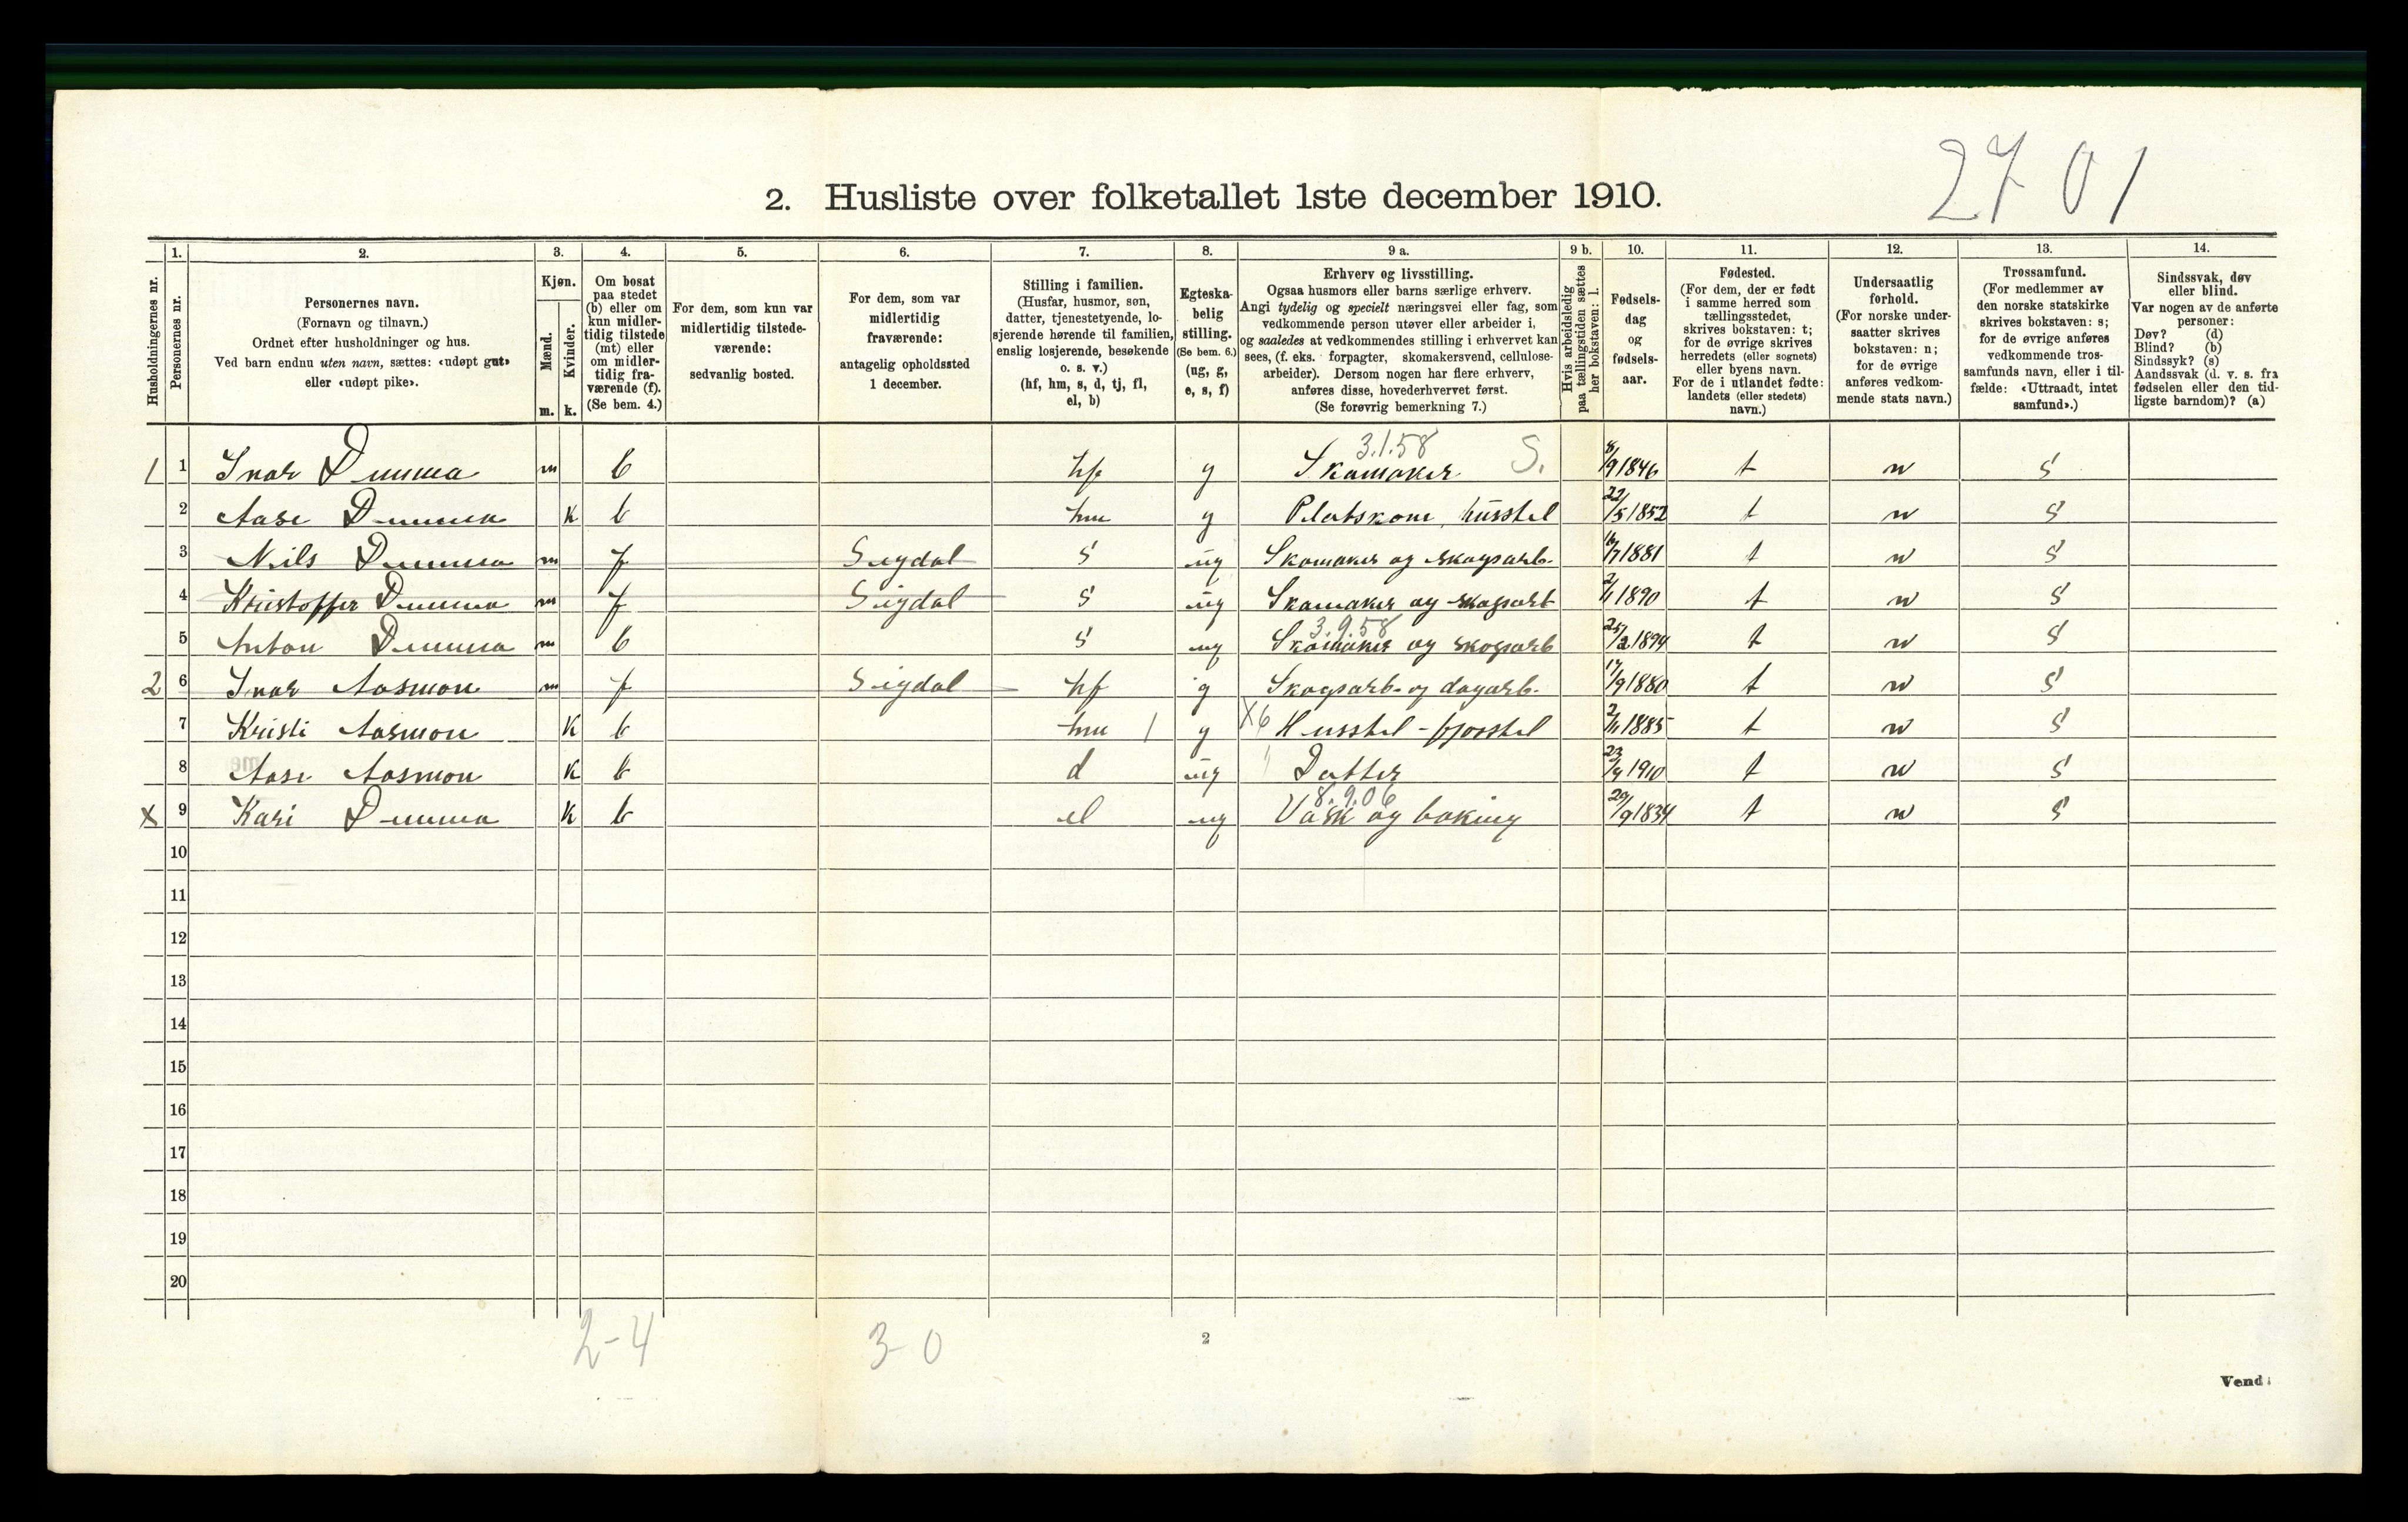 27 01
2. Husliste over folketallet 1ste december 1910.
1. 2. 3. 4. 5. 6. 7. 8. 9 a. 9 b. 10. 11. 12. 13. 14.
Husholdningernes nr.
Personernes nr.
Personernes navn.
(Fornavn og tilnavn.)
Ordnet efter husholdninger og hus.
Ved barn endnu uten navn, sættes: «udøpt gut»
eller «udøpt pike».
Kjøn.
Mænd.
Kvinder.
m. k.
Om bosat
paa stedet
(b) eller om
kun midler-
tidig tilstede
(mt) eller
om midler-
tidig fra-
værende (f).
(Se bem. 4.)
For dem, som kun var
midlertidig tilstede-
værende:
sedvanlig bosted.
For dem, som var
midlertidig
fraværende:
antagelig opholdssted
1 december.
Stilling i familien.
(Husfar, husmor, søn,
datter, tjenestetyende, lo-
sjerende hørende til familien,
enslig losjerende, besøkende
o. s. v.)
(hf, hm, s, d, tj, fl,
el, b)
Egteska-
belig
stilling.
(Se bem. 6.)
(ug, g,
e, s, f)
Erhverv og livsstilling.
Ogsaa husmors eller barns særlige erhverv.
Angi tydelig og specielt næringsvei eller fag, som
vedkommende person utøver eller arbeider i,
og saaledes at vedkommendes stilling i erhvervet kan
sees, (f. eks. forpagter, skomakersvend, cellulose-
arbeider). Dersom nogen har flere erhverv,
anføres disse, hovederhvervet først.
(Se forøvrig bemerkning 7.)
Hvis arbeidsledig
paa tællingstiden sættes
her bokstaven: l.
Fødsels-
dag
og
fødsels-
aar.
Fødested.
(For dem, der er født
i samme herred som
tællingsstedet,
skrives bokstaven: t;
for de øvrige skrives
herredets (eller sognets)
eller byens navn.
For de i utlandet fødte:
landets (eller stedets)
navn.)
Undersaatlig
forhold.
(For norske under-
saatter skrives
bokstaven: n;
for de øvrige
anføres vedkom-
mende stats navn.)
Trossamfund.
(For medlemmer av
den norske statskirke
skrives bokstaven: s;
for de øvrige anføres
vedkommende tros-
samfunds navn, eller i til-
fælde: «Uttraadt, intet
samfund».)
Sindssvak, døv
eller blind.
Var nogen av de anførte
personer:
Døv? (d)
Blind? (b)
Sindssyk? (s)
Aandssvak (d. v. s. fra
fødselen eller den tid-
ligste barndom)? (a)
3.1.58
1 1 Ivar Dumma m b hf g Skomaker S. 8/9 1846 t n s
2 Aase Dumma k b hm g Platskone, husstel 22/5 1852 t n s
3 Nils Dumma m f Sigdal s ug Skomaker og skogsarb. 16/7 1881 t n s
4 Kristoffer Dumma m f Sigdal s ug Skomaker og skogsarb 2/1 1890 t n s
3.9.58
5 Anton Dumma m b s ug Skomaker og skogsarb 25/2 1894 t n s
2 6 Ivar Aasmon m f Sigdal hf g Skogsarb. og dagarb. 17/9 1880 t n s
7 Kristi Aasmon k b hm / g X6 Husstel - fjosstel 2/11 1885 t n s
8 Aase Aasmon k b d ug Datter 23/4 1910 t n s
8.9.06
X 9 Kari Dumma k b el ug Vask og baking 29/9 1834 t n s
10
11
12
13
14
15
16
17
18
19
20
2-4 3-0
2
Vend!